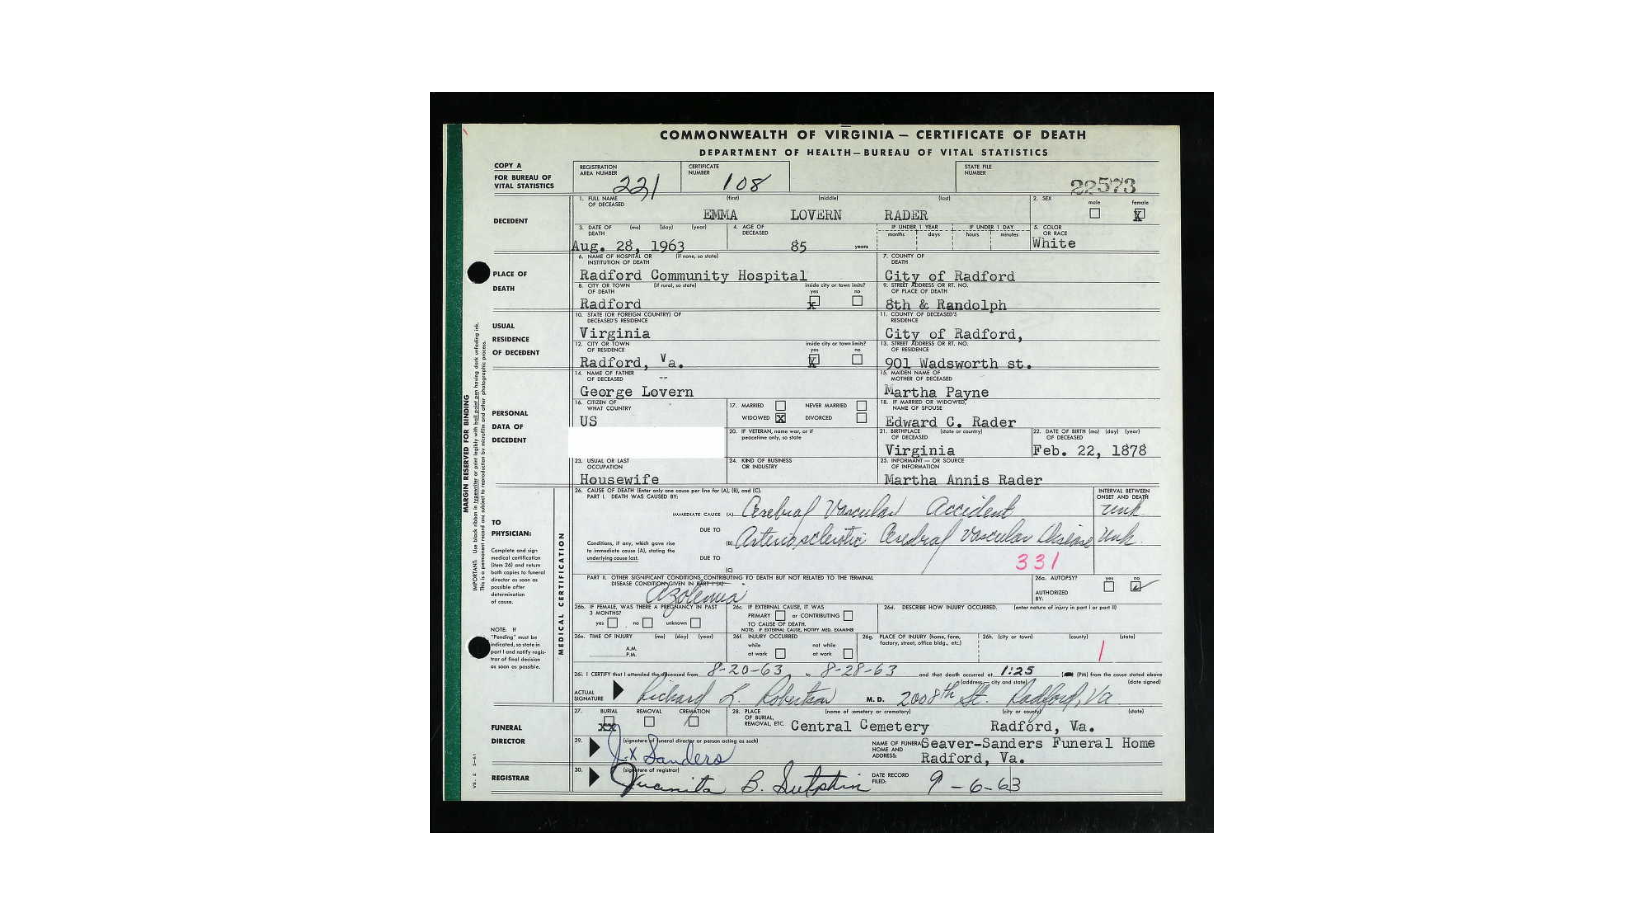 COMMONWEALTH OF VIRGINIA — CERTIFICATE OF DEATH
DEPARTMENT OF HEALTH—BUREAU OF VITAL STATISTICS
COPY A
FOR BUREAU OF
VITAL STATISTICS
REGISTRATION
AREA NUMBER 221
CERTIFICATE
NUMBER 108
STATE FILE
NUMBER
22573
DECEDENT
1. FULL NAME
OF DECEASED (first) (middle) (last)
EMMA LOVERN RADER
2. SEX male female X
3. DATE OF (mo) (day) (year)
DEATH
Aug. 28, 1963
4. AGE OF
DECEASED
85 years
IF UNDER 1 YEAR IF UNDER 1 DAY
months days hours minutes
5. COLOR
OR RACE
White
PLACE OF
DEATH
6. NAME OF HOSPITAL OR (if none, so state)
INSTITUTION OF DEATH
Radford Community Hospital
7. COUNTY OF
DEATH
City of Radford
8. CITY OR TOWN (if rural, so state)
OF DEATH
Radford
inside city or town limits?
yes no
x
9. STREET ADDRESS OR RT. NO.
OF PLACE OF DEATH
8th & Randolph
USUAL
RESIDENCE
OF DECEDENT
10. STATE (OR FOREIGN COUNTRY) OF
DECEASED'S RESIDENCE
Virginia
11. COUNTY OF DECEASED'S
RESIDENCE
City of Radford,
12. CITY OR TOWN
OF RESIDENCE
Radford, Va.
inside city or town limits?
yes no
X
13. STREET ADDRESS OR RT. NO.
OF RESIDENCE
901 Wadsworth st.
PERSONAL
DATA OF
DECEDENT
14. NAME OF FATHER
OF DECEASED --
George Lovern
15. MAIDEN NAME OF
MOTHER OF DECEASED
Martha Payne
16. CITIZEN OF
WHAT COUNTRY
US
17. MARRIED NEVER MARRIED
WIDOWED X DIVORCED
18. IF MARRIED OR WIDOWED,
NAME OF SPOUSE
Edward C. Rader
20. IF VETERAN, name war, or if
peacetime only, so state
21. BIRTHPLACE (state or country)
OF DECEASED
Virginia
22. DATE OF BIRTH (mo) (day) (year)
OF DECEASED
Feb. 22, 1878
23. USUAL OR LAST
OCCUPATION
Housewife
24. KIND OF BUSINESS
OR INDUSTRY
25. INFORMANT—OR SOURCE
OF INFORMATION
Martha Annis Rader
MARGIN RESERVED FOR BINDING
TO
PHYSICIAN:
Complete and sign
medical certification
(item 26) and return
both copies to funeral
director as soon as
possible after
determination
of cause.
NOTE: If
"Pending" must be
indicated, so state in
part I and notify regis-
trar of final decision
as soon as possible.
MEDICAL CERTIFICATION
26. CAUSE OF DEATH (Enter only one cause per line for (A), (B), and (C).
PART I. DEATH WAS CAUSED BY:
INTERVAL BETWEEN
ONSET AND DEATH
IMMEDIATE CAUSE (A) Cerebral Vascular Accident unk
DUE TO
(B) Arteriosclerotic Cerebral Vascular Disease unk.
Conditions, if any, which gave rise
to immediate cause (A), stating the
underlying cause last.
DUE TO
(C)
331
PART II. OTHER SIGNIFICANT CONDITIONS CONTRIBUTING TO DEATH BUT NOT RELATED TO THE TERMINAL
DISEASE CONDITION GIVEN IN PART I (A)
Azotemia
26a. AUTOPSY? yes no
AUTHORIZED
BY:
26b. IF FEMALE, WAS THERE A PREGNANCY IN PAST
3 MONTHS?
yes no unknown
26c. IF EXTERNAL CAUSE, IT WAS
PRIMARY or CONTRIBUTING
TO CAUSE OF DEATH.
NOTE: IF EXTERNAL CAUSE, NOTIFY MED. EXAMINER
26d. DESCRIBE HOW INJURY OCCURRED. (enter nature of injury in part I or part II)
26e. TIME OF INJURY (mo) (day) (year)
A.M.
P.M.
26f. INJURY OCCURRED
while not while
at work at work
26g. PLACE OF INJURY (home, farm,
factory, street, office bldg., etc.)
26h. (city or town) (county) (state)
1
26i. I CERTIFY that I attended the deceased from 8-20-63 to 8-28-63 and that death occurred at 1:25 (PM) from the cause stated above
(address—city and state) (date signed)
ACTUAL
SIGNATURE Richard L. Robertson M. D. 200 8th St. Radford, Va
FUNERAL
DIRECTOR
27. BURIAL REMOVAL CREMATION
XX
28. PLACE
OF BURIAL,
REMOVAL, ETC. (name of cemetery or crematory) (city or county) (state)
Central Cemetery Radford, Va.
29. (signature of funeral director or person acting as such)
Sanders
NAME OF FUNERAL
HOME AND
ADDRESS:
Seaver-Sanders Funeral Home
Radford, Va.
REGISTRAR
30. (signature of registrar)
Juanita B. Sutphin
DATE RECORD
FILED: 9-6-63